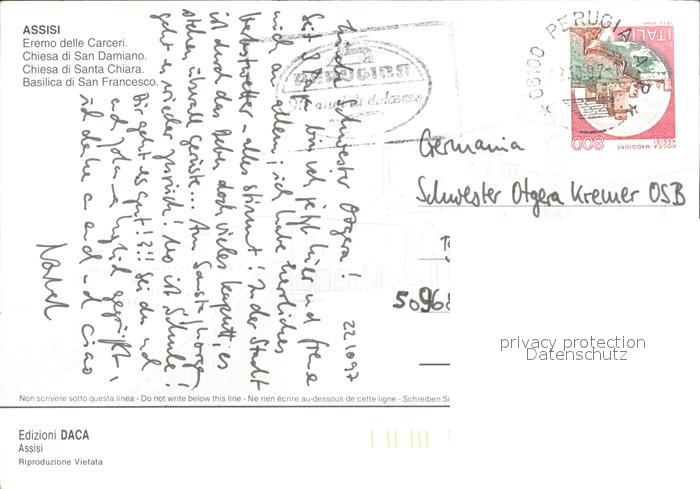 ASSISI
Eremo delle Carceri.
Chiesa di San Damiano.
Chiesa di Santa Chiara.
Basilica di San Francesco.
06100 PERUGIA A.P.
22.10.97
ITALIA
800
ROCCA MAGGIORE
ASSISI
22 10 97
Schwester Otgera!
Seit bin ich jetzt hier und freue
mich an allem; ich habe herrliches
- alles stimmt! In der Stadt
ist durch das Beben doch vieles kaputt, es
stehen überall Gerüste... Am Samstag
geht es wieder zurück! Mo ist Schule!
Dir geht es gut!?!! Sei du und
gegrüßt,
ich denke an und Ciao
Germania
Schwester Otgera Kremer OSB
5096
privacy protection
Datenschutz
Non scrivere sotto questa linea - Do not write below this line - Ne rien écrire au-dessous de cette ligne - Schreiben Si
Edizioni DACA
Assisi
Riproduzione Vietata